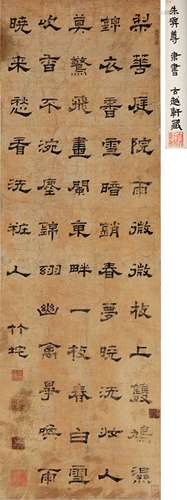 朱彝尊 隸書 軒藏
梨華庭院雨微微枝上雙鳩濕
錦衣香雪暗銷春夢曉洗妝人
莫驚飛畫闌東畔一枝春白雪
吹香不涴塵錦翎幽禽喚雨
曉來愁看洗粧人
竹垞